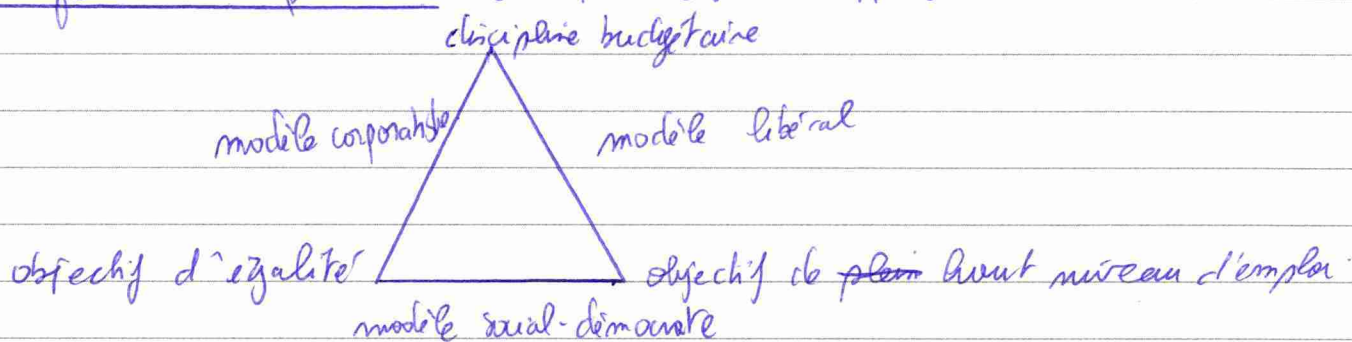 discipline budgétaire
modèle corporatiste
modèle libéral
objectif d'égalité
objectif de plein haut niveau d'emploi
modèle social-démocrate